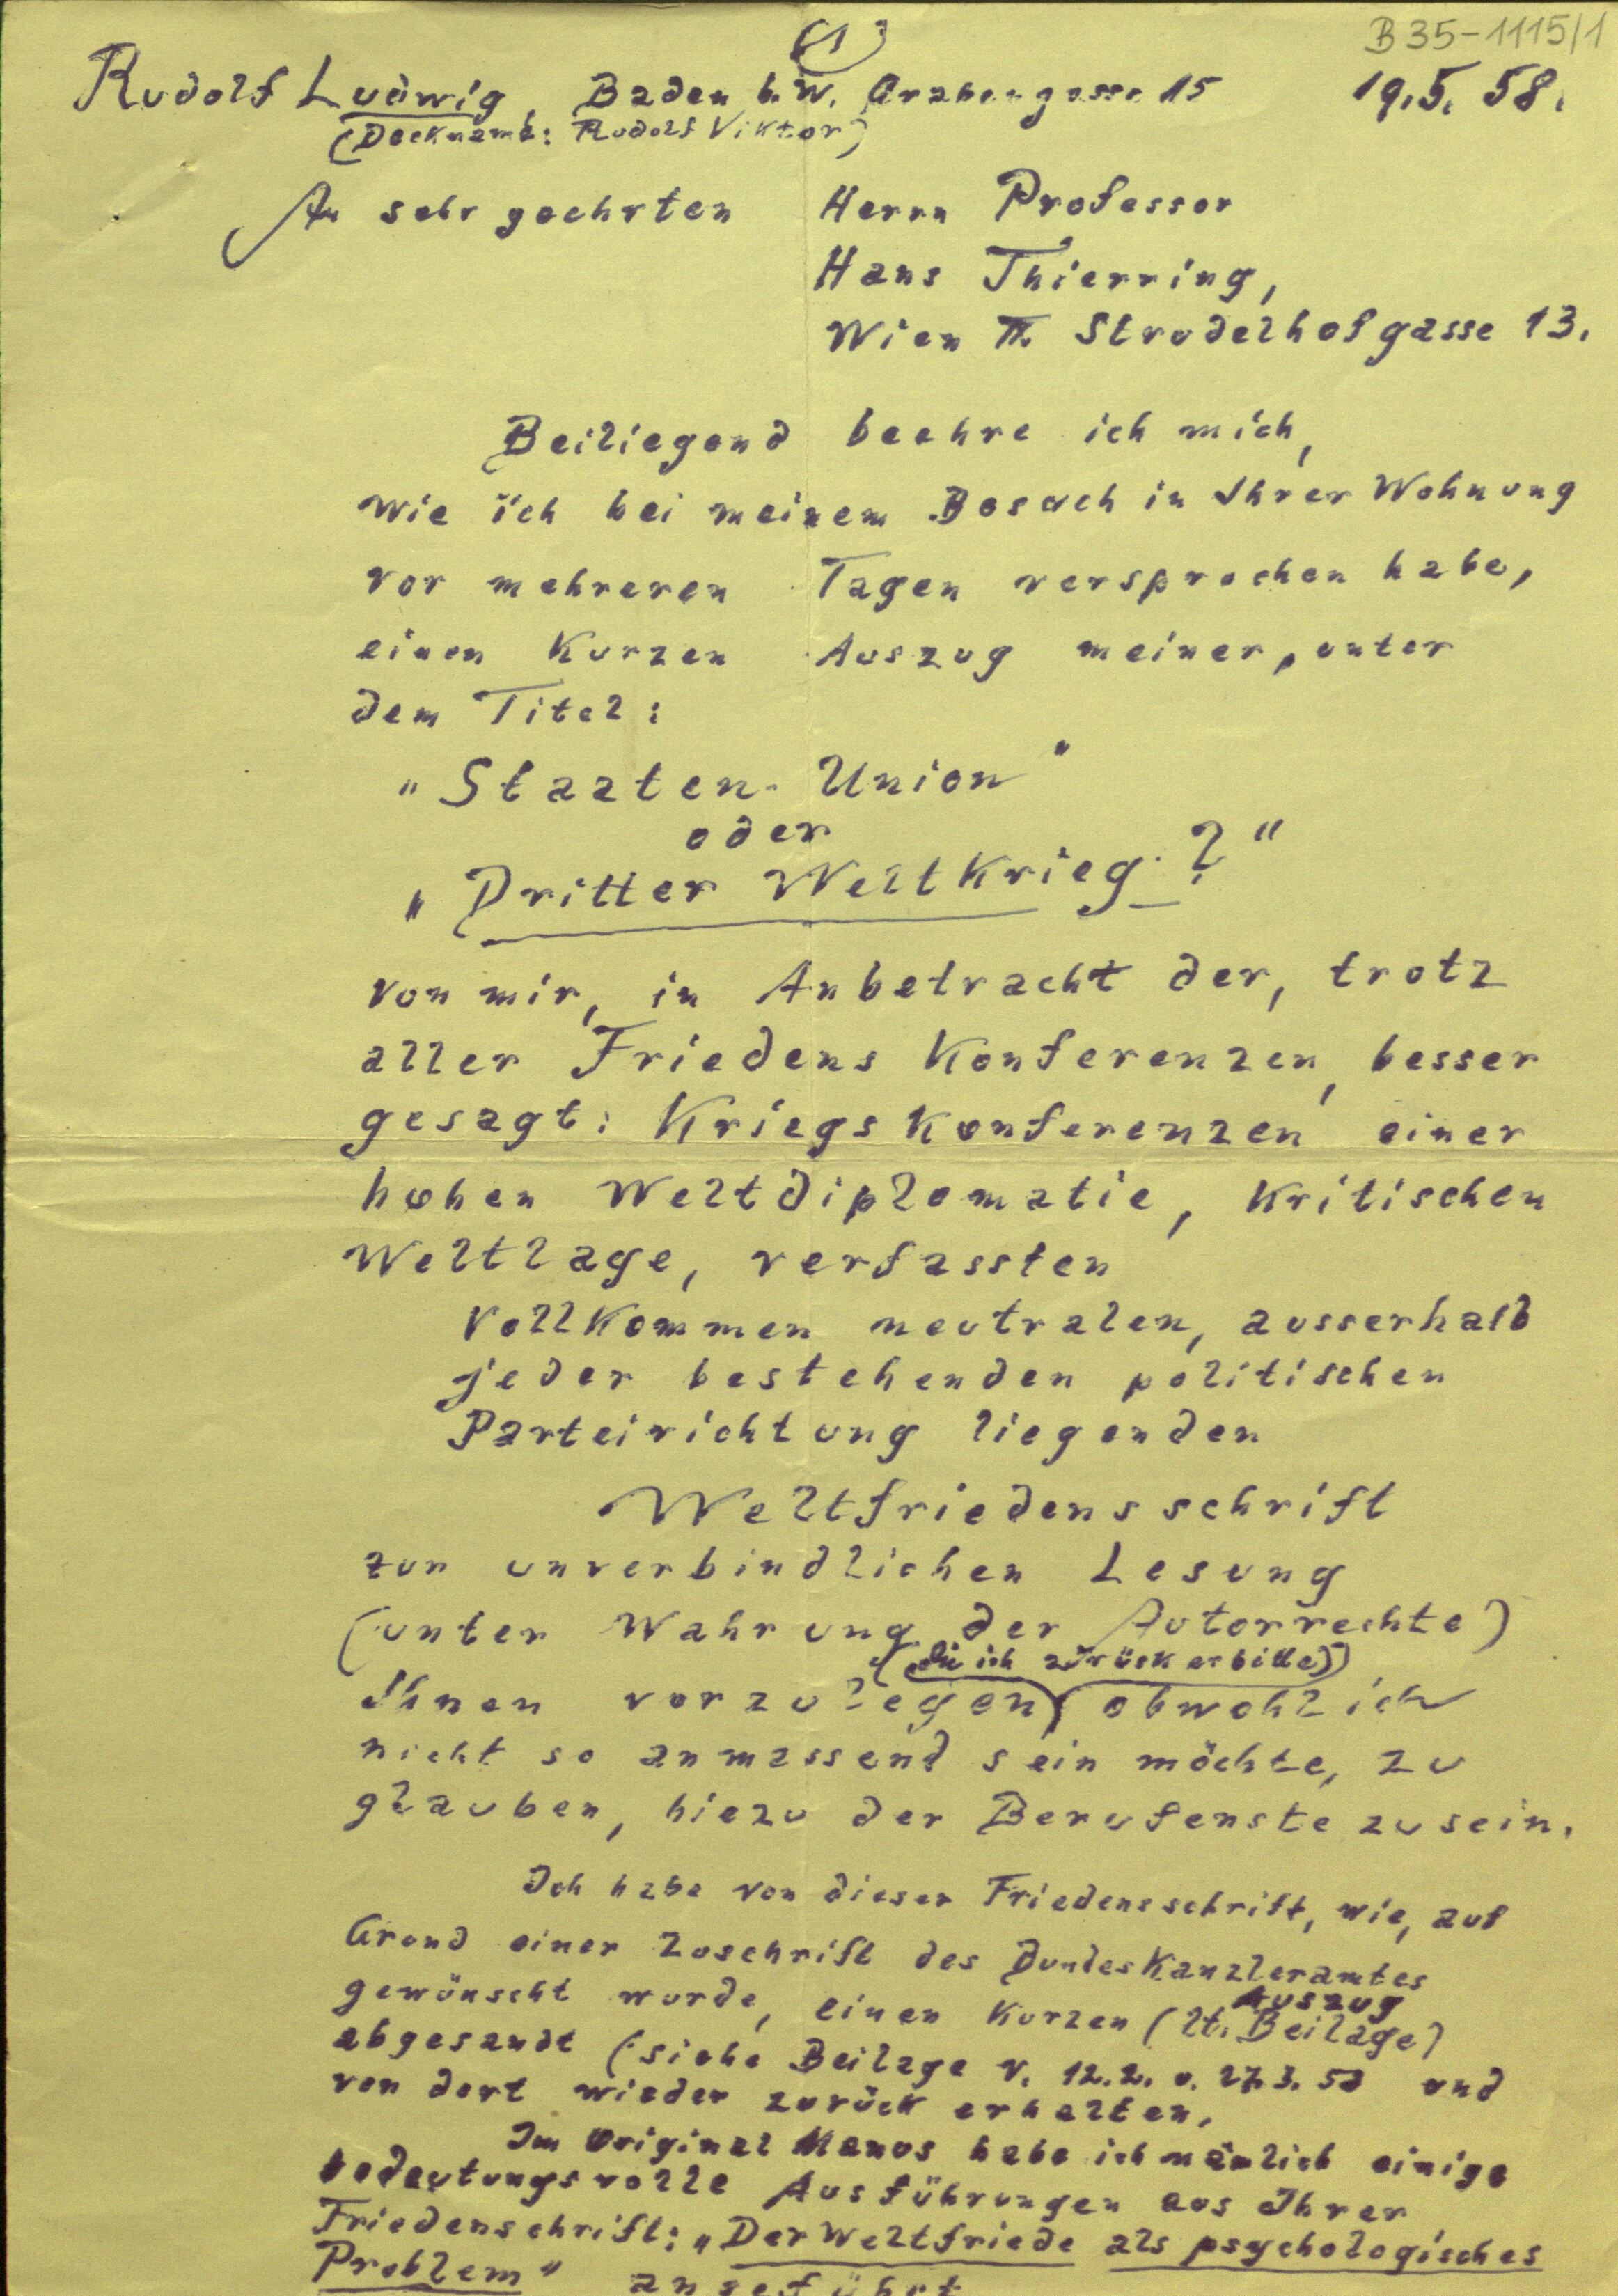 (1)
B35-1115/1
Rudolf Ludwig, Baden b. W. Grabengasse 15 19.5.58.
(Deckname: Rudolf Viktor)
An sehr geehrten Herrn Professor
Hans Thierring,
Wien Strudelhofgasse 13.
Beiliegend beehre ich mich,
wie ich bei meinem Besuch in Ihrer Wohnung
vor mehreren Tagen versprochen habe,
einen Kurzen Auszug meiner, unter
dem Titel:
„Staaten-Union"
oder
„Dritter Weltkrieg?"
von mir, in Anbetracht der, trotz
aller Friedens Konferenzen, besser
gesagt: Kriegs Konferenzen einer
hohen Weltdiplomatie, Kritischen
Weltlage, verfassten
vollkommen neutralen, ausserhalb
jeder bestehenden politischen
Parteirichtung liegenden
Weltfriedensschrift
zur unverbindlichen Lesung
(unter Wahrung der Autorrechte)
(die ich zurück erbitte)
Ihnen vorzulegen, obwohl ich
nicht so anmassend sein möchte, zu
glauben, hiezu der Berufenste zu sein.
Ich habe von dieser Friedensschrift, wie, auf
Grund einer Zuschrift des Bundeskanzleramtes
gewünscht wurde, einen Kurzen Auszug (lt. Beilage)
abgesandt (siehe Beilage v. 12.2. u. 27.3. 58 und
von dort wieder zurück erhalten.
Im Original Manus habe ich nämlich einige
bedeutungsvolle Ausführungen aus Ihrer
Friedenschrift: „Der Weltfriede als psychologisches
Problem" angeführt